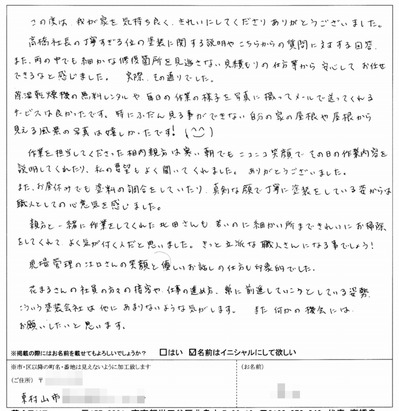 この度は、我が家を気持ち良く、きれいにしてくださりありがとうございました。
高橋社長の丁寧すぎる位の塗装に関する説明やこちらからの質問に対する回答、
また、雨の中でも細かな修復箇所を見逃さない見積もりの仕方等から安心してお任せ
できるなと感じました。実際、その通りでした。
除湿乾燥機の無料レンタルや毎日の作業の様子を写真に撮ってメールで送ってくれる
サービスは良かったです。特にふだん見る事ができない自分の家の屋根や屋根から
見える風景の写真は嬉しかったです!
作業を担当してくださった相内親方は寒い朝でもニコニコ笑顔でその日の作業内容を
説明してくれたり、私の要望もよく聞いてくれました。ありがとうございました。
また、お昼休みでも塗料の調合をしていたり、真剣な顔で丁寧に塗装をしている姿からは
職人としての心意気を感じました。
親方と一緒に作業をしてくれた北田さんも若いのに細かい所まできれいにお掃除
をしてくれてよく気が付く人だと思いました。きっと立派な職人さんになる事でしょう!
現場管理の江口さんの笑顔と優しいお話しの仕方も印象的でした。
花まるさんの社員の方々の接客や仕事の進め方、常に前進していこうとしている姿勢、
こういう塗装会社は他にあまりないような気がします。また何かの機会には
お願いしたいと思います。
※掲載の際にはお名前を載せてもよろしいでしょうか? □はい ☑名前はイニシャルにして欲しい
※市・区以降の町名・番地は見えないように加工致します
(ご住所) 〒
(お名前)
東村山市